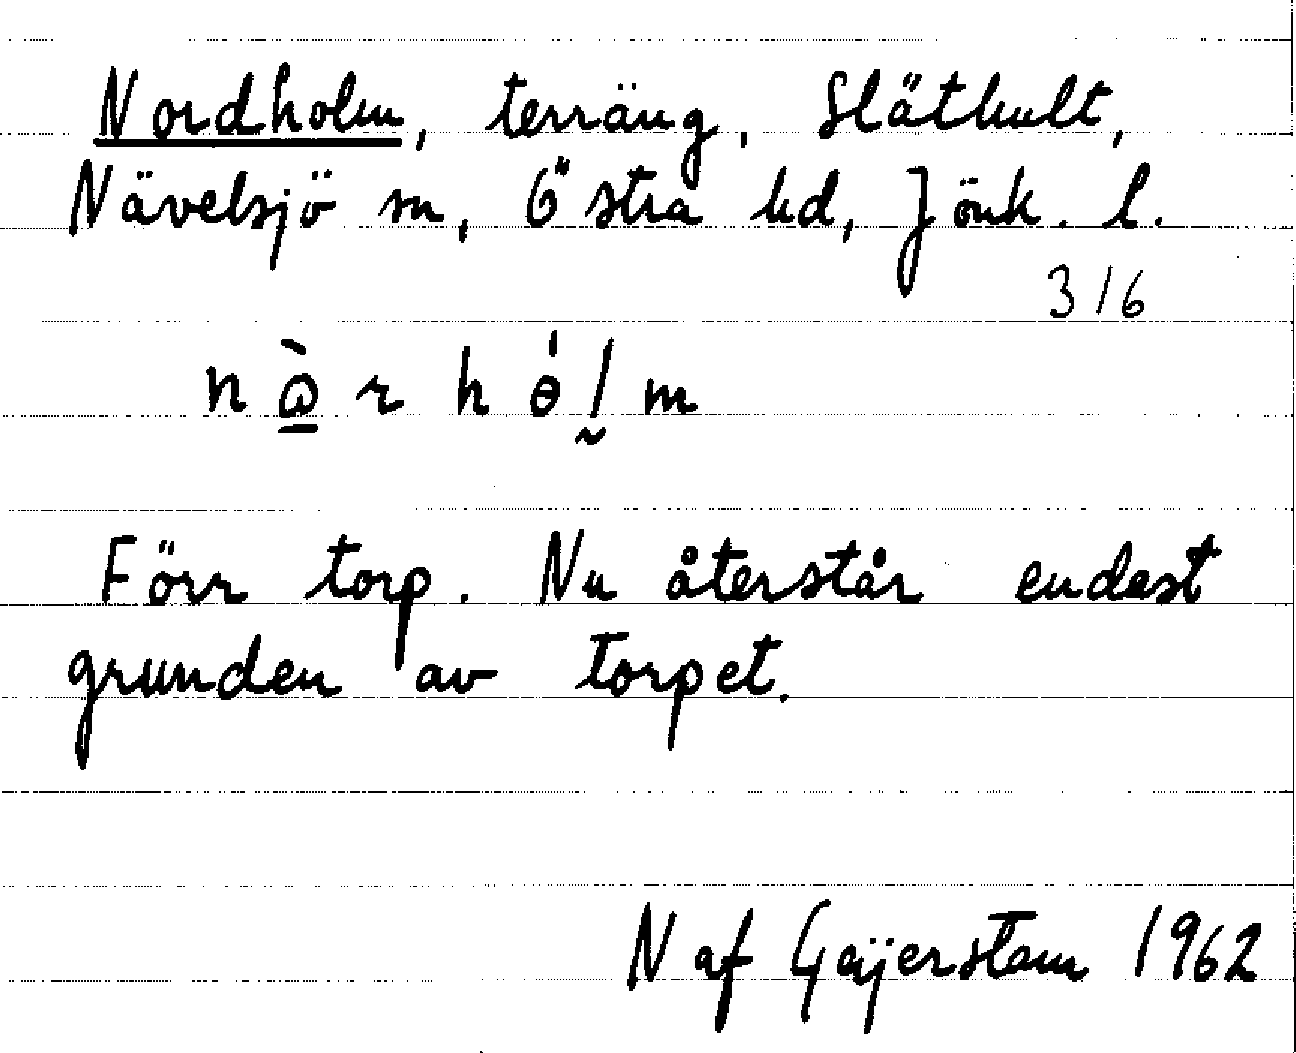 Nordholm, terräng, Släthult,
Nävelsjö sn, Östra hd, Jönk. l.
316
n ò r h ɵ́ l m
Förr torp. Nu återstår endast
grunden av torpet.
N af Geijerstam 1962